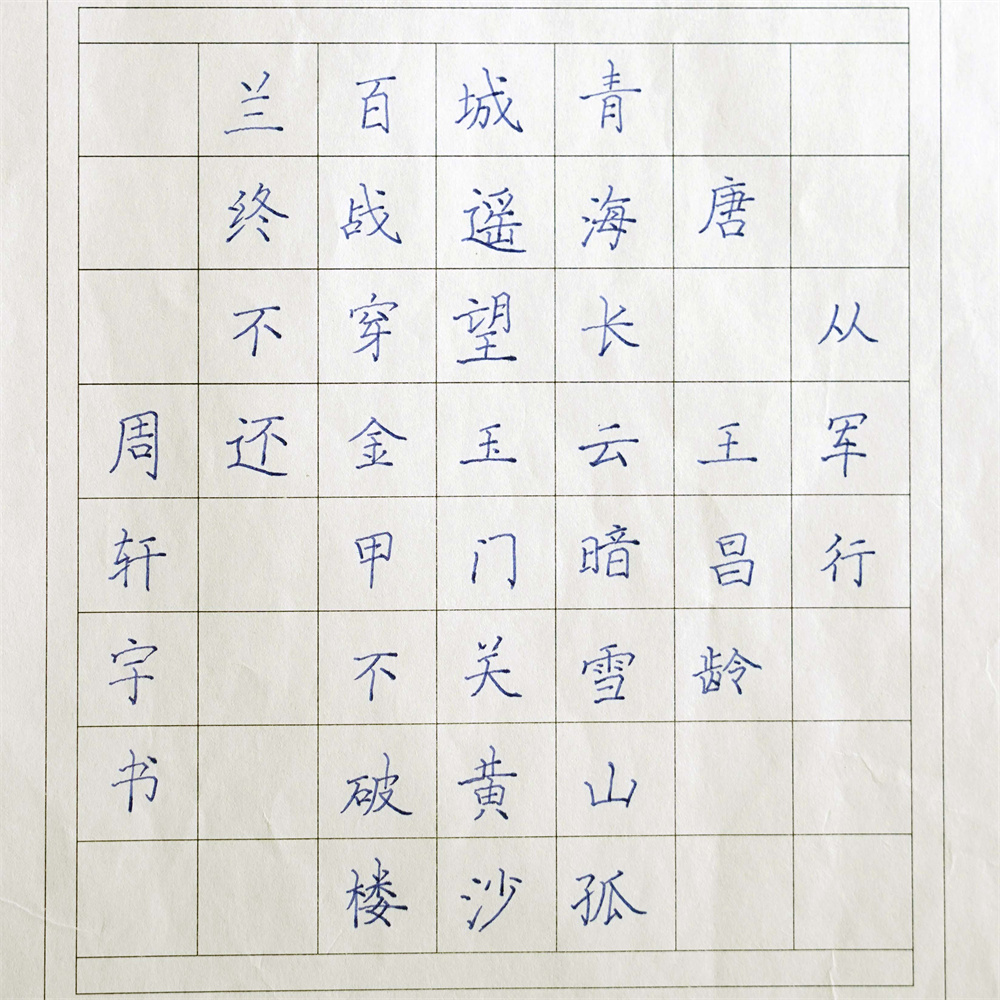 从军行
唐王昌龄
青海长云暗雪山孤
城遥望玉门关黄沙
百战穿金甲不破楼
兰终不还
周轩宇书